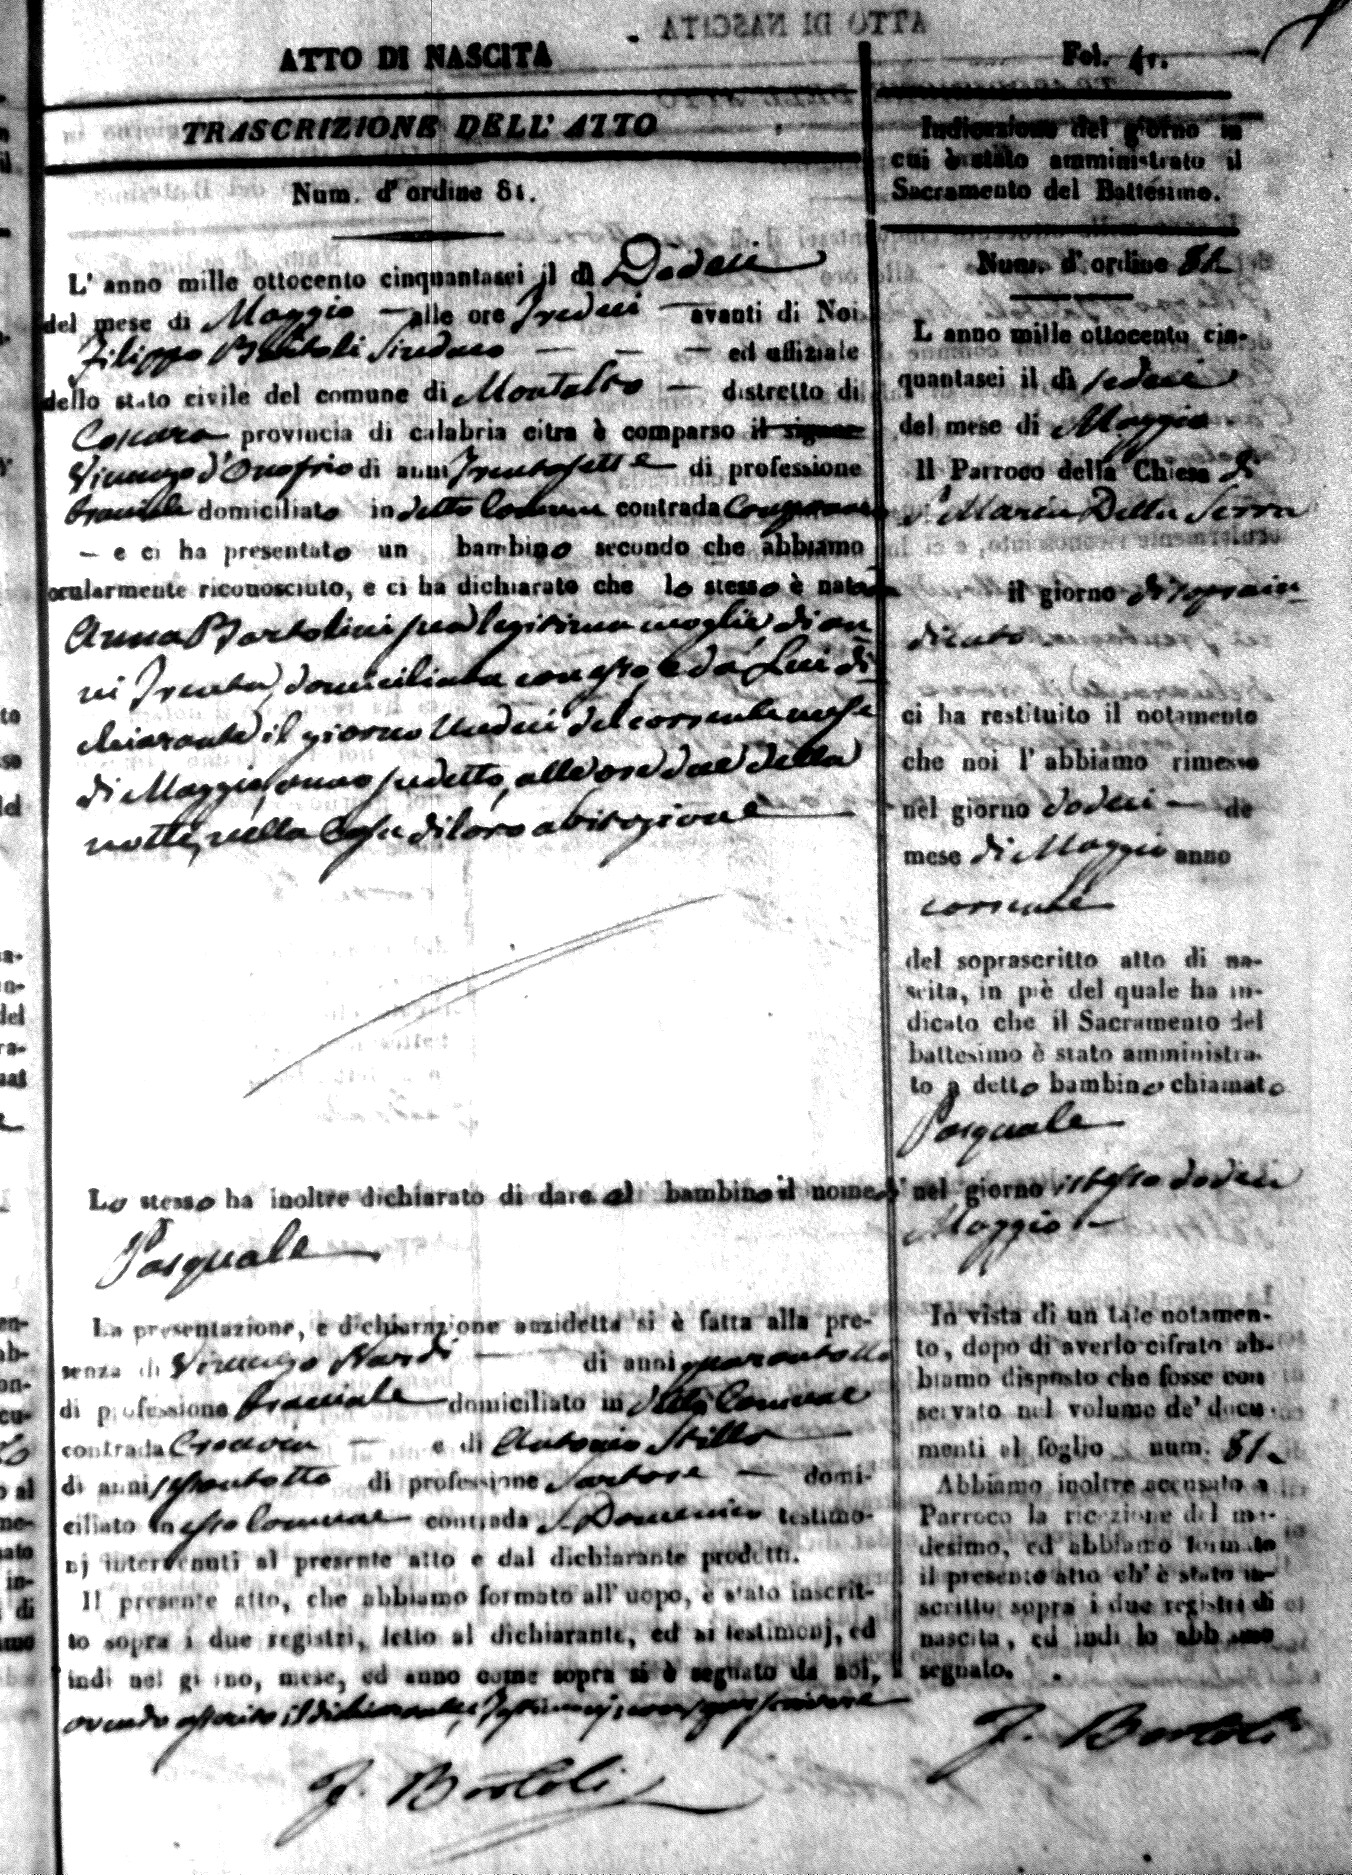 ATTO DI NASCITA
TRASCRIZIONE DELL' ATTO
Num. d' ordine 81.
L' anno mille ottocento cinquantasei il dì Dodeci
del mese di Maggio — alle ore Tredeci — avanti di Noi
Filippo Bartoli Sindaco — — — ed uffiziale
dello stato civile del comune di Montalto — distretto di
Cosenza provincia di calabria citra è comparso il signor
Vincenzo d'Onofrio di anni Trentasette — di professione
bracciale domiciliato in detto Comune contrada
— e ci ha presentato un bambino secondo che abbiamo
ocularmente riconosciuto, e ci ha dichiarato che lo stesso è nato da
Anna Bartolini sua legitima moglie di an
ni Trenta, domiciliata con esso, e da Lui di
chiarante il giorno Undeci del corrente mese
di Maggio, anno sudetto, alle ore due della
notte, nella Casa di loro abitazione
Lo stesso ha inoltre dichiarato di dare al bambino il nome di
Pasquale
La presentazione, e dichiarazione anzidetta si è fatta alla pre-
senza di Vincenzo Nardi — di anni quarantotto
di professione bracciale domiciliato in detto Comune
contrada — e di Antonio Stillo
di anni di professione Sartore — domi-
ciliato in esso Comune contrada S. Domenico testimo-
nj intervenuti al presente atto e dal dichiarante prodotti.
Il presente atto, che abbiamo formato all' uopo, è stato inscrit-
to sopra i due registri, letto al dichiarante, ed ai testimonj, ed
indi nel giorno, mese, ed anno come sopra si è segnato da noi,
avendo asserito il dichiarante, e Testimonj, non saper scrivere
F. Bartoli
Fol. 41.
Indicazione del giorno in
cui è stato amministrato il
Sacramento del Battesimo.
Num. d' ordine 81.
L anno mille ottocento cin-
quantasei il dì sedeci
del mese di Maggio
Il Parroco della Chiesa di
S. Maria Della Serra
il giorno di sopra in
dicato
ci ha restituito il notamento
che noi l' abbiamo rimesso
nel giorno dodeci — de
mese di Maggio anno
corrente
del soprascritto atto di na-
scita, in piè del quale ha in-
dicato che il Sacramento del
battesimo è stato amministra-
to a detto bambino chiamato
Pasquale
nel giorno istesso dodeci
Maggio —
In vista di un tale notamen-
to, dopo di averlo cifrato ab-
biamo disposto che fosse con
servato nel volume de' docu-
menti al foglio num. 81.
Abbiamo inoltre accusato a
Parroco la ricezione del me-
desimo, ed abbiamo formato
il presente atto ch' è stato in-
scritto sopra i due registri di
nascita, ed indi lo abbiamo
segnato.
F. Bartoli